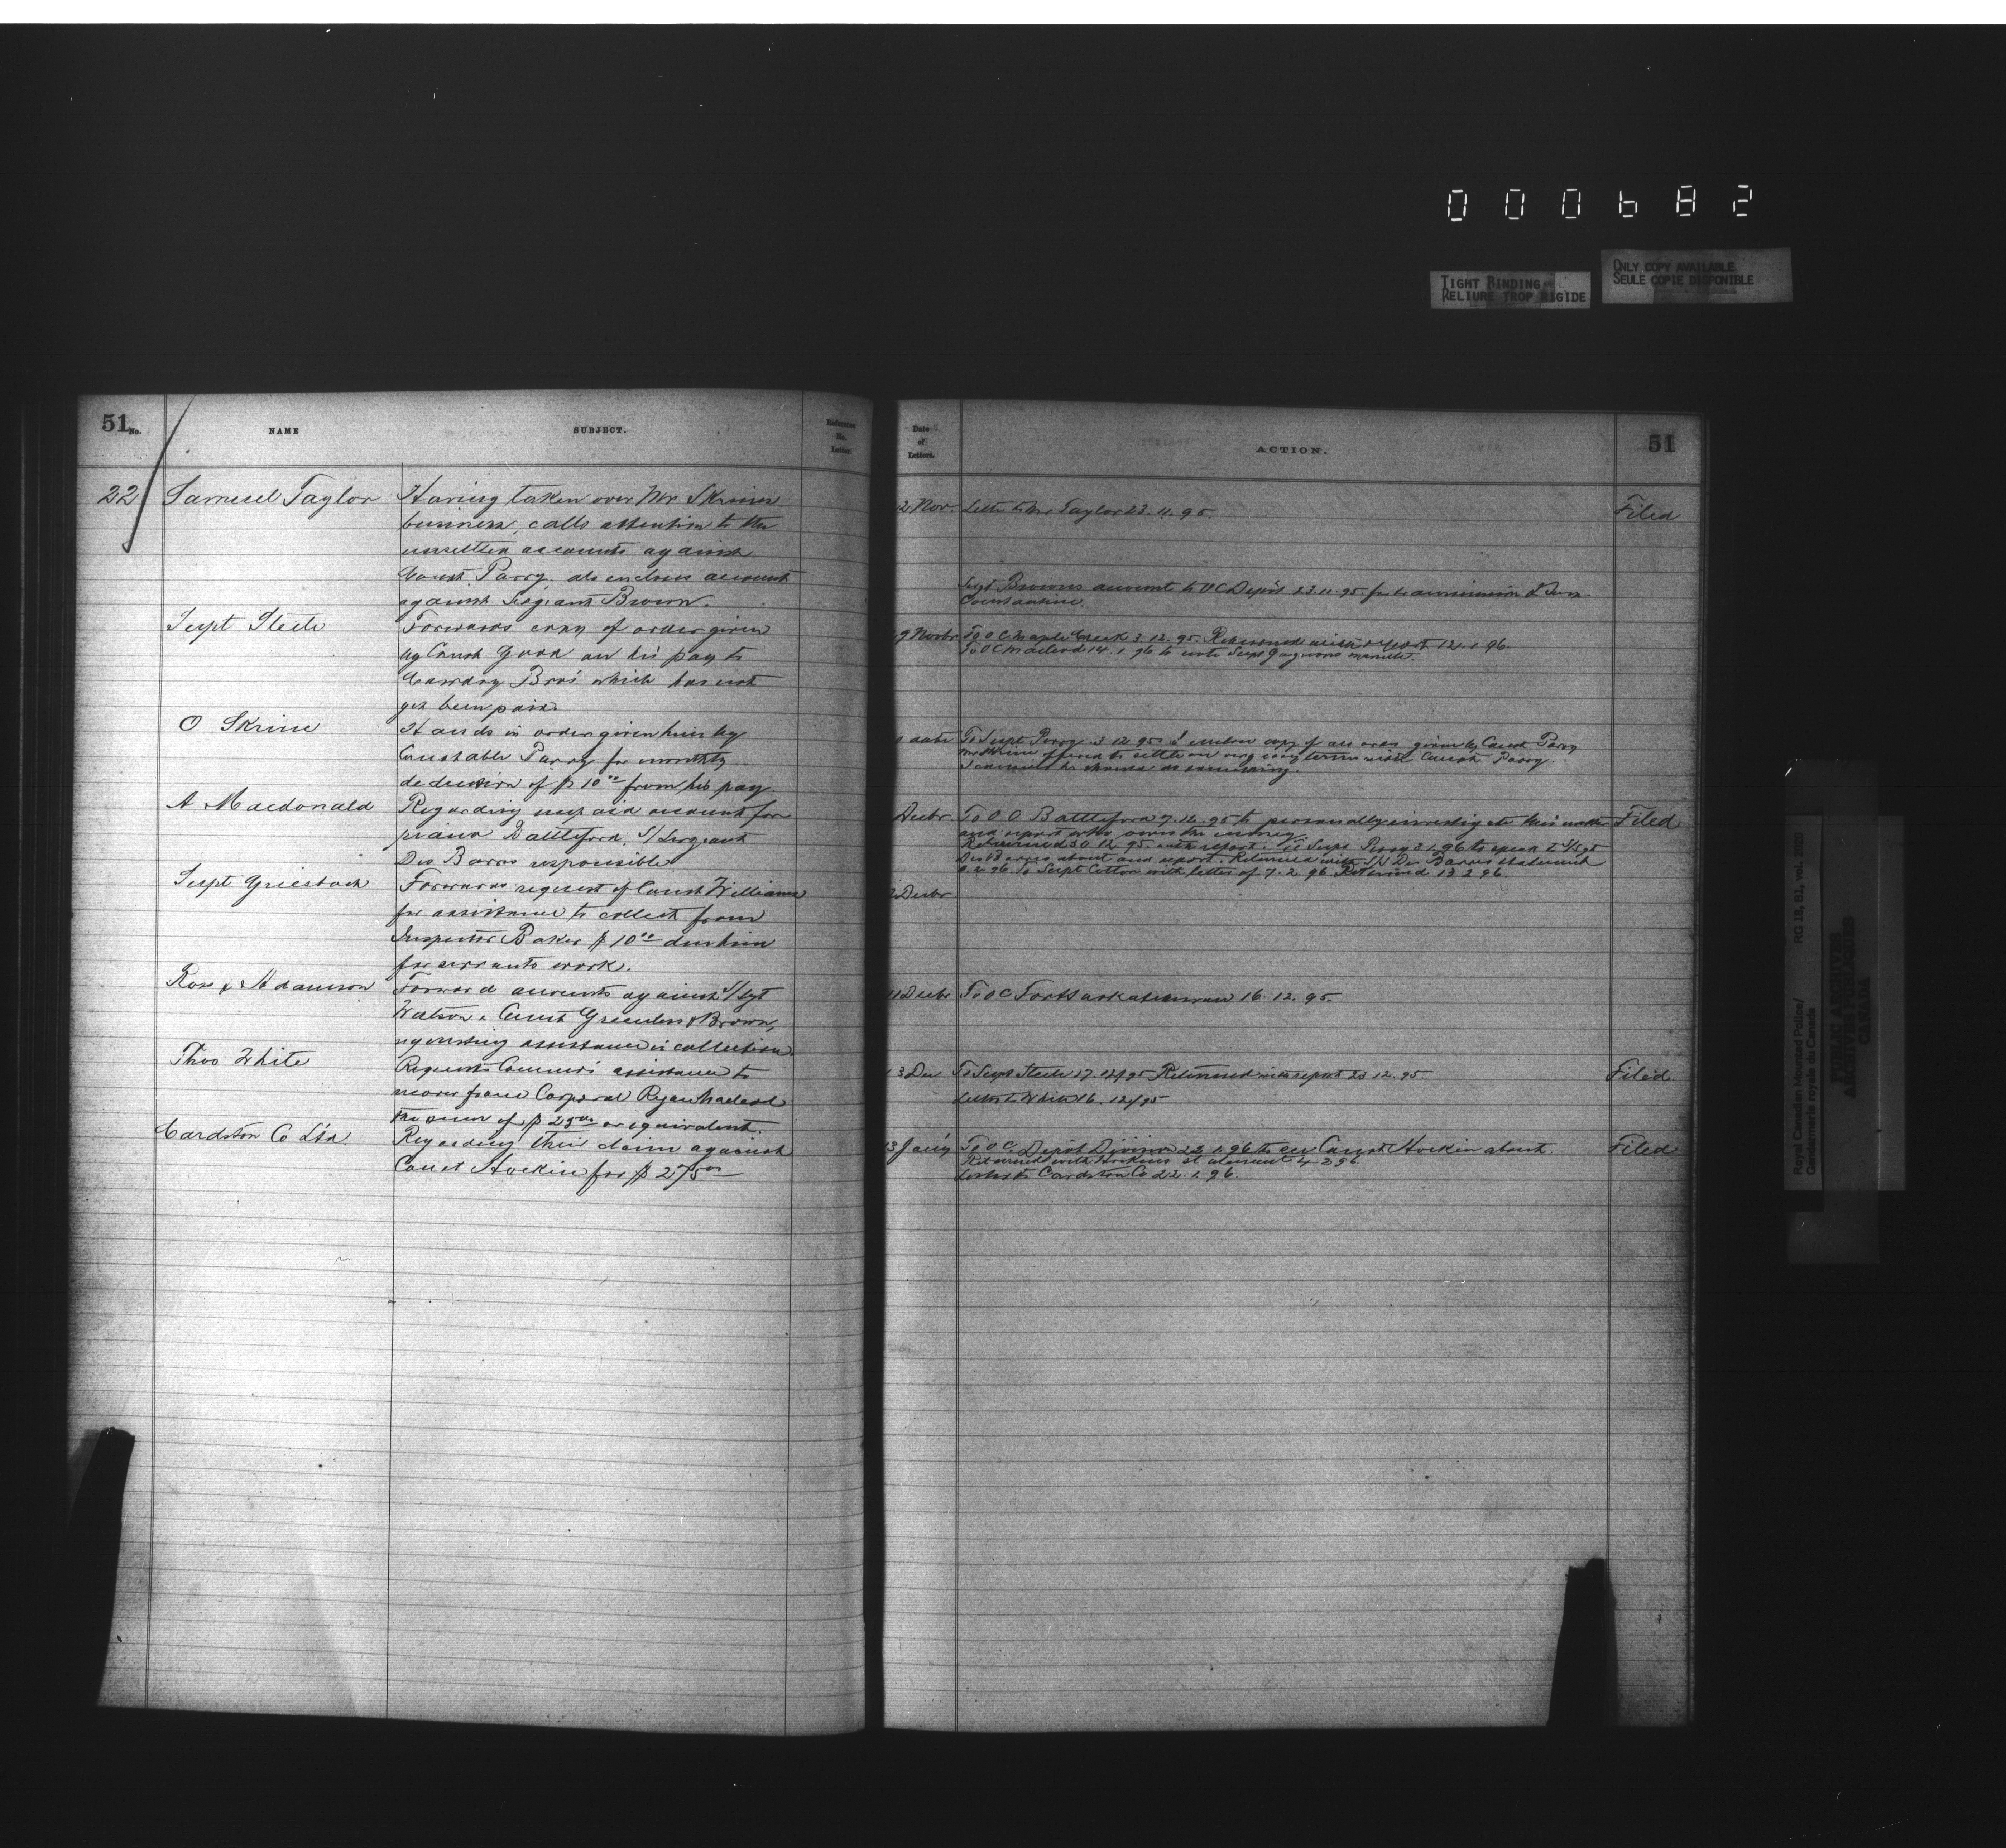 000682
TIGHT BINDING
RELIURE TROP RIGIDE
ONLY COPY AVAILABLE
SEULE COPIE DISPONIBLE
51 No.
NAME
SUBJECT.
Reference No. Letter
22
Samuel Taylor
Having taken over Mr Skrines
business, calls attention to the
unsettled accounts against
Const. Parry. also encloses account
against Sergeant Brown.
Supt Steele
Forwards copy of order given
by Const Good on his pay to
Cowdry Bros which has not
yet been paid
O Skrine
Hands in order given him by
Constable Parry for monthly
deduction of $10 00 from his pay
A Macdonald
Regarding unpaid account for
piano Battleford. S/Sergeant
Des Barres responsible
Supt Griesbach
Forwards request of Const Williams
for assistance to collect from
Inspector Baker $10 00 due him
for servants work.
Ross & Adamson
Forward accounts against S/Sgt
Watson & Const Greenless & Brown,
requesting assistance in collection
Thos White
Requests Commrs assistance to
recover from Corporal Ryan Macleod
the sum of $25 00 or equivalent.
Cardston Co Ltd
Regarding their claim against
Const Hockin for $275 00
Date of Letters.
ACTION.
51
2 Nov
Letter to Mr Taylor 23.11.95.
Filed
Sergt Browns account to OC Depôt 23.11.95 for transmission to Insp
Constantine
9 Novbr
To OC Maple Creek 3.12.95. Returned with report 12.1.96.
To OC Macleod 14.1.96 to note Supt Gagnons minute.
date
To Supt Perry 3 12 95. I enclose copy of an order given by Const Parry
Mr Skrine offered to settle on very easy terms with Const Parry.
I consider he should do something.
Decbr
To O.C Battleford 9.12.95 to personally investigate this matter
and report who owes the money.
Filed
Returned 30.12.95 with report. To Supt Perry 3.1.96 to speak to S/Sgt
Des Barres about and report. Returned with S/S Des Barres statement
2.96 To Supt Cotton with letter of 7.2.96 Returned 13 2 96
2 Decbr
11 Decbr
To OC Fort Saskatchewan 16.12.95.
13 Dec
To Supt Steele 17.12/95 Returned with report 23 12.95
Filed
Letter to White 16.12/95
13 Jany
To OC. Depôt Division 22.1.96 to see Const Hockin about.
Filed
Returned with Hockins statement 4.2.96
Letter to Cardston Co 22.1.96.
Royal Canadian Mounted Police/
Gendarmerie royale du Canada
RG 18, B1, vol. 2020
PUBLIC ARCHIVES
ARCHIVES PUBLIQUES
CANADA